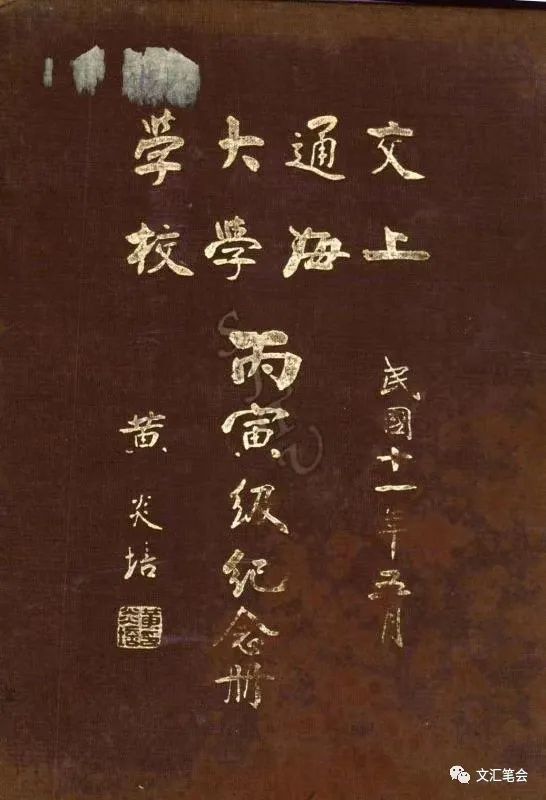 交通大學
上海學校
民國十一年五月
丙寅級紀念册
黄炎培
文汇笔会